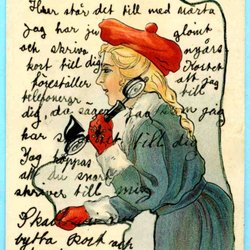 Hur står det till med Märta
Jag har ju glömt
och skriva nyårs
kort till dig Kortet
föreställer att jag
telefonerar
dig, du säger jag som
har till dig
Jag hoppas
att du snart
skriver till mig
Skall
bytta kort och